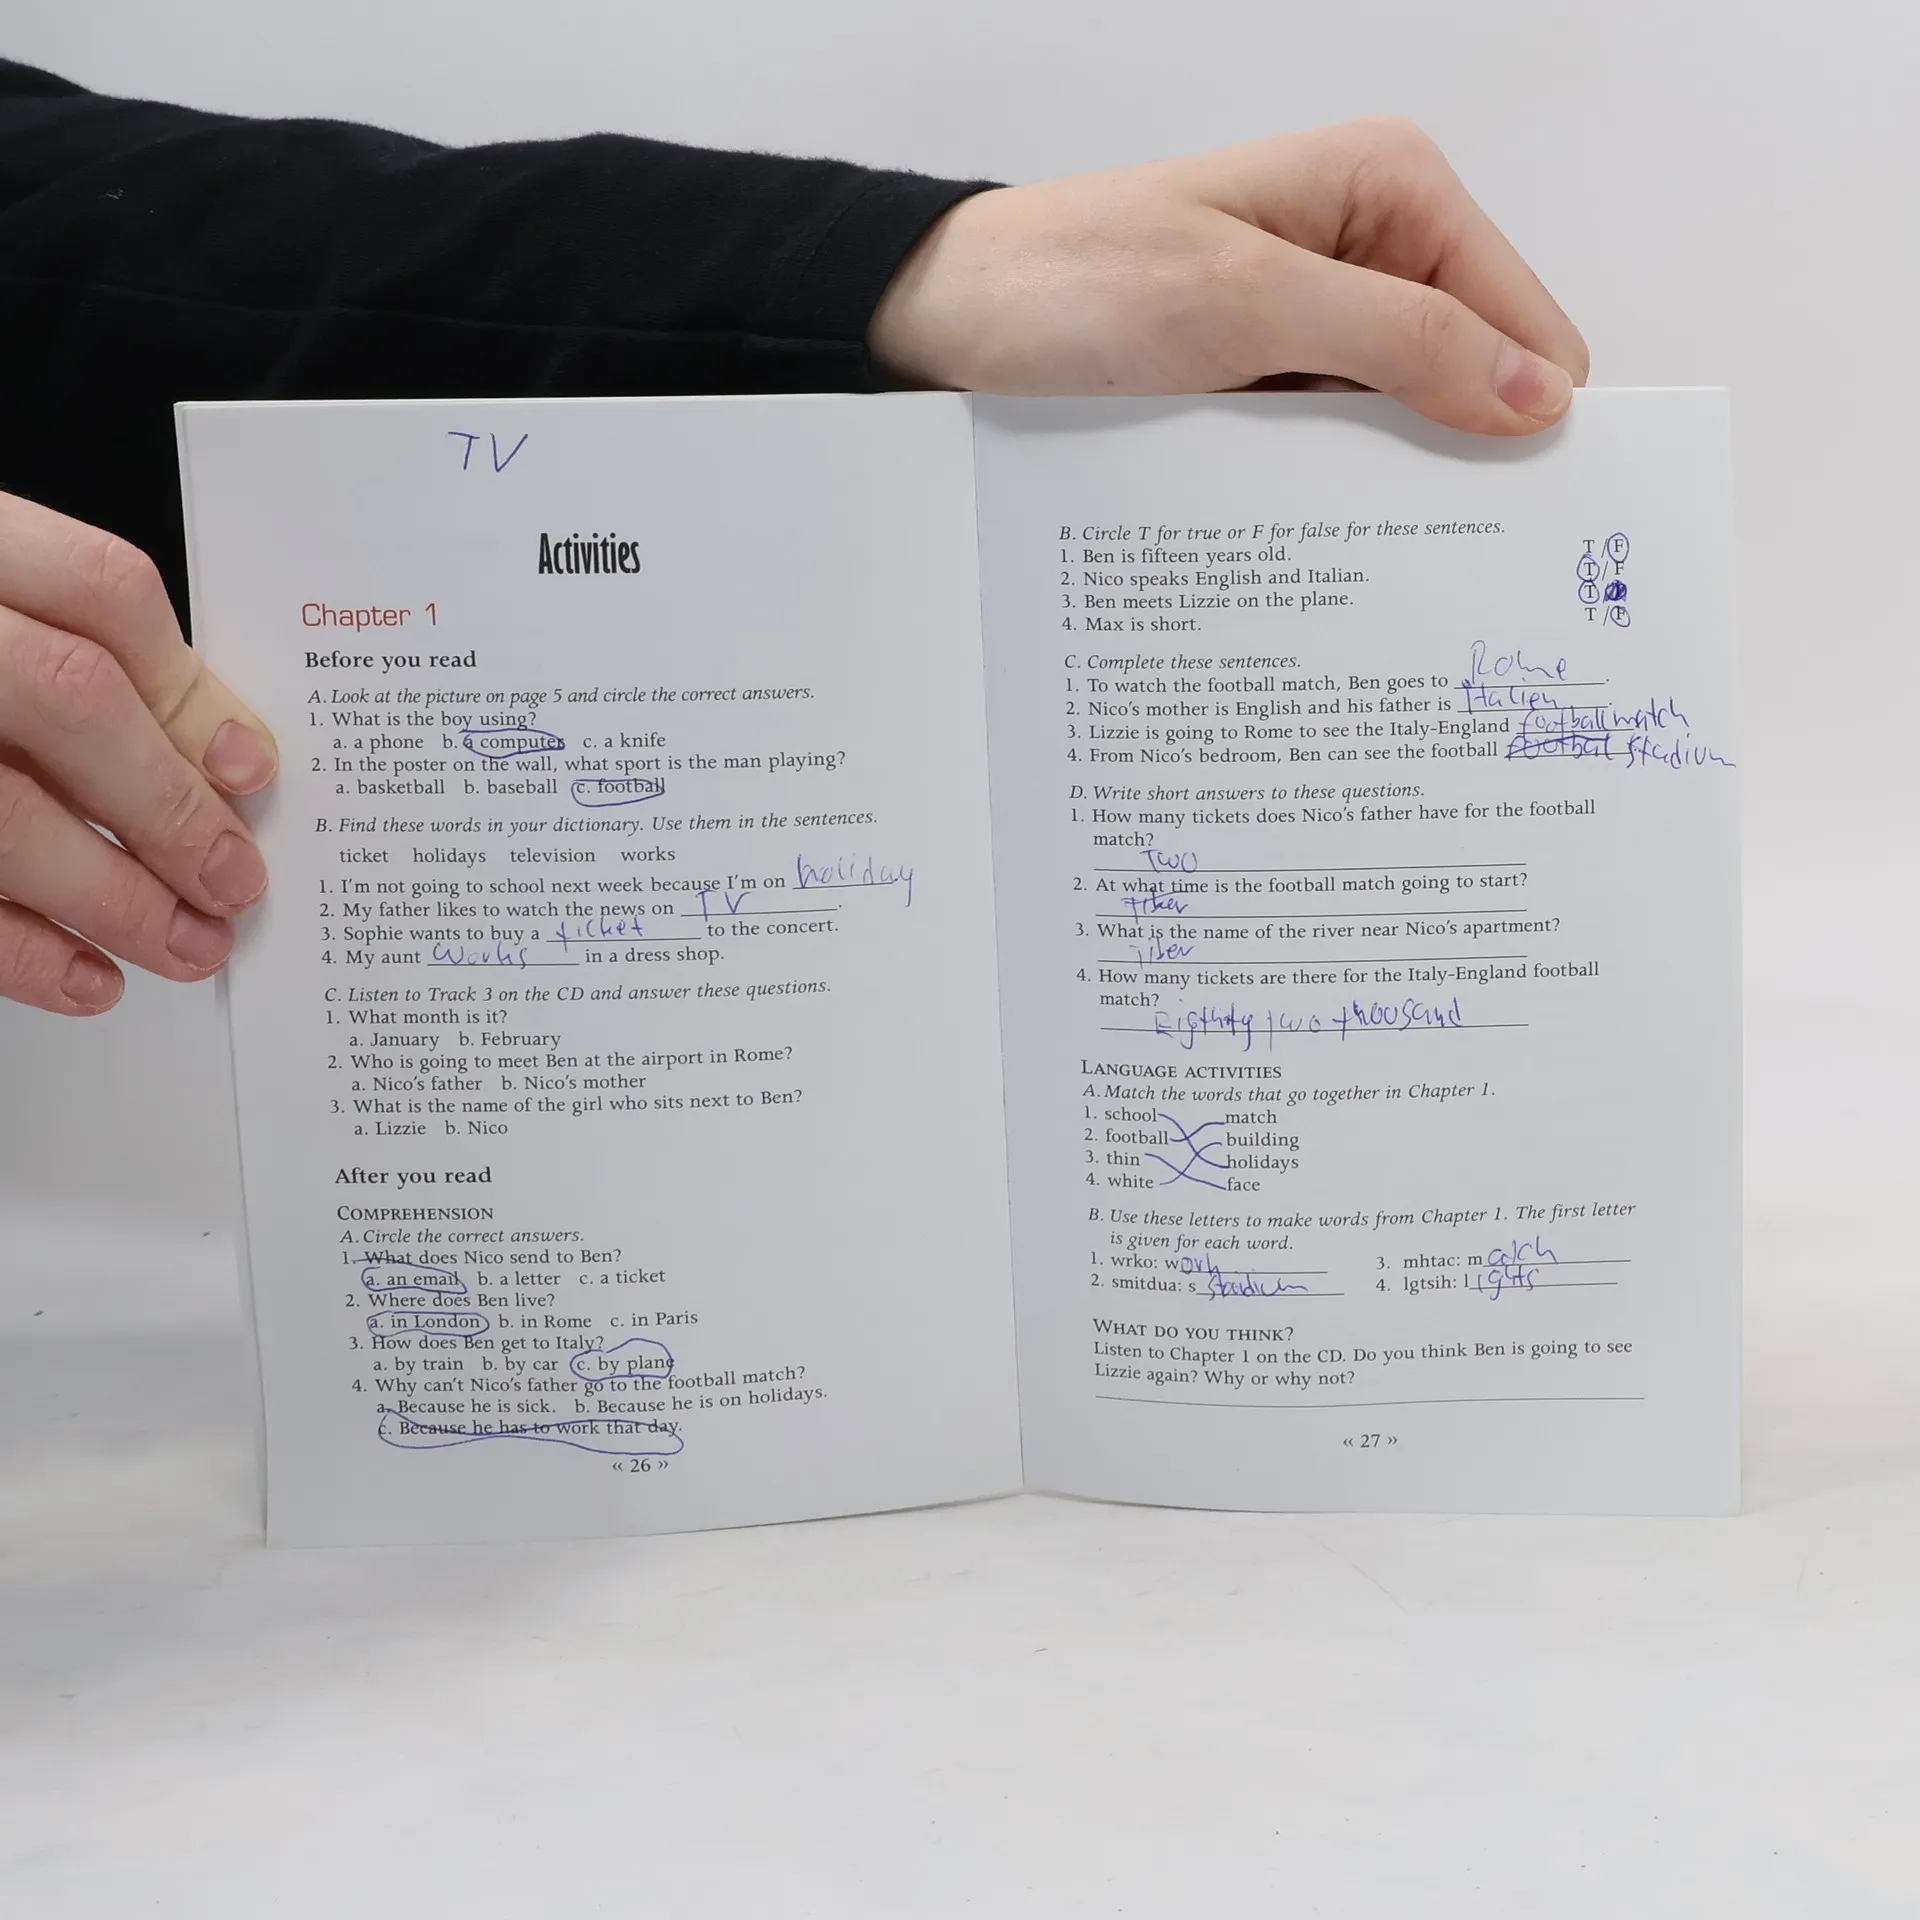 TV
Activities
Chapter 1
Before you read
A. Look at the picture on page 5 and circle the correct answers.
1. What is the boy using?
a. a phone b. a computer c. a knife
2. In the poster on the wall, what sport is the man playing?
a. basketball b. baseball c. football
B. Find these words in your dictionary. Use them in the sentences.
ticket holidays television works
1. I'm not going to school next week because I'm on holiday
2. My father likes to watch the news on TV.
3. Sophie wants to buy a ticket to the concert.
4. My aunt works in a dress shop.
C. Listen to Track 3 on the CD and answer these questions.
1. What month is it?
a. January b. February
2. Who is going to meet Ben at the airport in Rome?
a. Nico's father b. Nico's mother
3. What is the name of the girl who sits next to Ben?
a. Lizzie b. Nico
After you read
COMPREHENSION
A. Circle the correct answers.
1. What does Nico send to Ben?
a. an email b. a letter c. a ticket
2. Where does Ben live?
a. in London b. in Rome c. in Paris
3. How does Ben get to Italy?
a. by train b. by car c. by plane
4. Why can't Nico's father go to the football match?
a. Because he is sick. b. Because he is on holidays.
c. Because he has to work that day.
« 26 »
B. Circle T for true or F for false for these sentences.
1. Ben is fifteen years old. T / F
2. Nico speaks English and Italian. T / F
3. Ben meets Lizzie on the plane. T /
4. Max is short. T / F
C. Complete these sentences.
1. To watch the football match, Ben goes to Rome.
2. Nico's mother is English and his father is Italien.
3. Lizzie is going to Rome to see the Italy-England football match
4. From Nico's bedroom, Ben can see the football football stadium
D. Write short answers to these questions.
1. How many tickets does Nico's father have for the football
match?
Two
2. At what time is the football match going to start?
3. What is the name of the river near Nico's apartment?
Tiber
4. How many tickets are there for the Italy-England football
match?
two thousand
LANGUAGE ACTIVITIES
A. Match the words that go together in Chapter 1.
1. school match
2. football building
3. thin holidays
4. white face
B. Use these letters to make words from Chapter 1. The first letter
is given for each word.
1. wrko: work 3. mhtac: match
2. smitdua: s stadium 4. lgtsih: lights
WHAT DO YOU THINK?
Listen to Chapter 1 on the CD. Do you think Ben is going to see
Lizzie again? Why or why not?
« 27 »